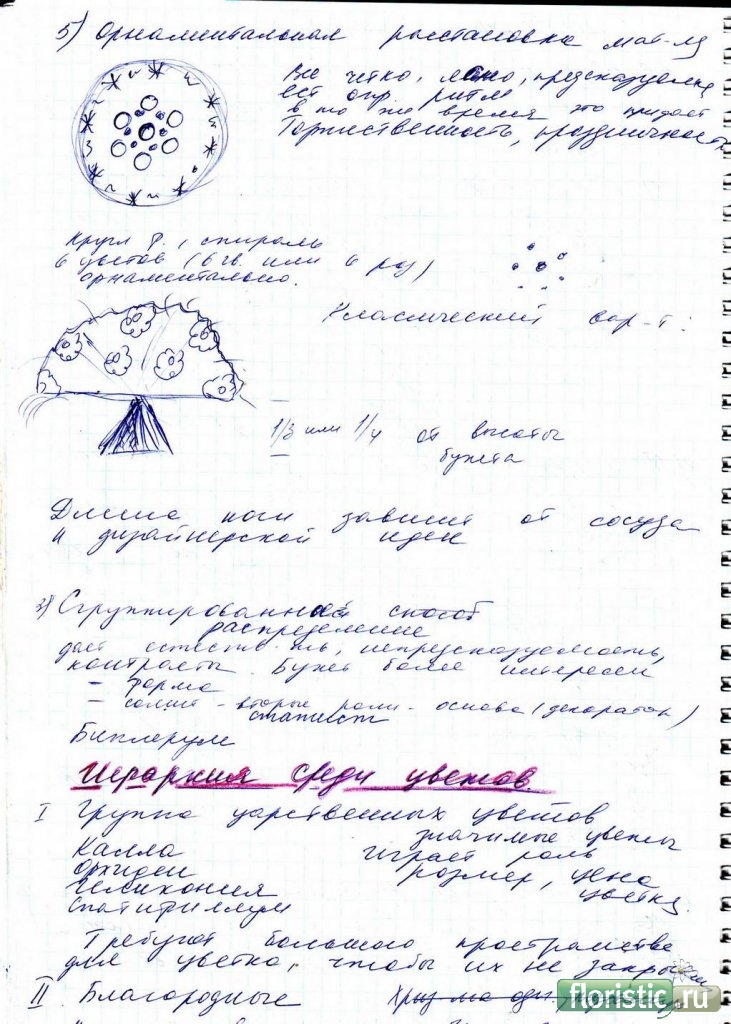 5) Орнаментальная расстановка мат-лa
Все четко, ясно, предсказуемо,
ест опр. ритм
в то же время это придает
Торжественность, праздничность
Кругл ф., спираль
6 цветов (6 гв. или 6 роз)
орнаментально.
Классический вар-т:
1/3 или 1/4 от высоты
букета
Длина ноги зависит от сосуда
и дизайнерской идеи
3) Сгруппированный способ
распределение
дает естеств-ть, непредсказуемость,
контрасты. Букет более интересен
- форма
- солист - вторые роли - основа (декоратон)
статист
Буплерум
Иерархия среди цветов.
I Группа царственных цветов
значимые цветы
Калла играет роль
орхидеи размер, цена
Геликония цветка.
Спатифиллум
Требуют большого пространства
для цветка, чтобы их не закрыли
II Благородные Хризма оди,
floristic.ru